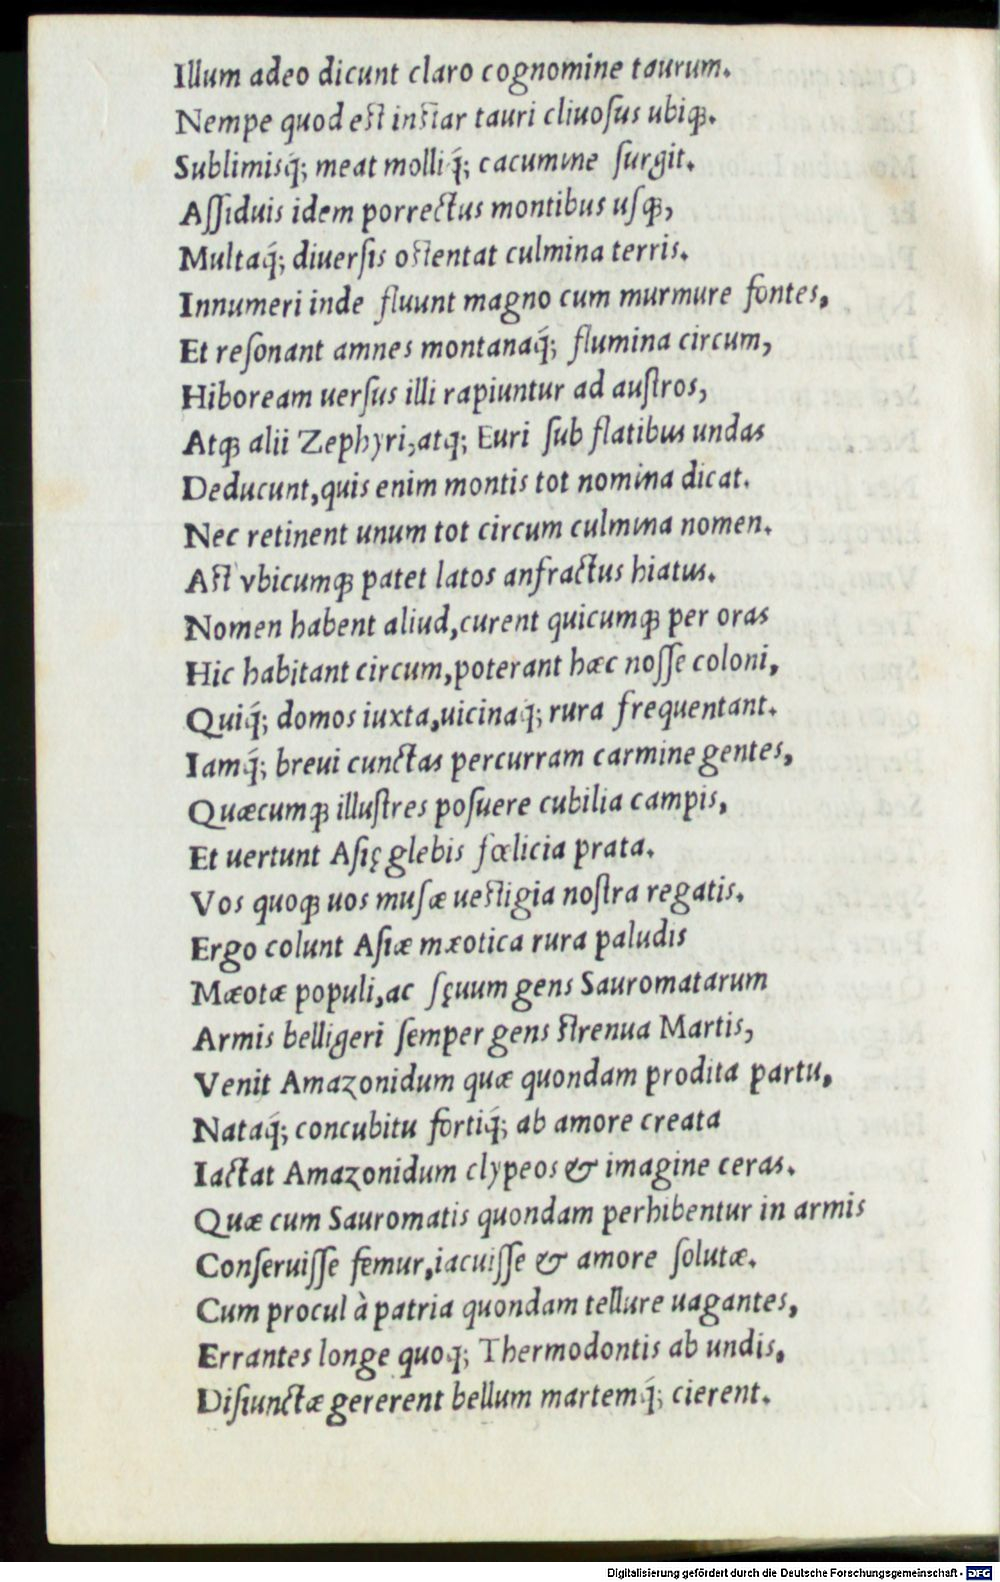 Illum adeo dicunt claro cognomine taurum.
Nempe quod est instar tauri cliuoſus ubiqꝫ.
Sublimisq́; meat molliq́; cacumine ſurgit.
Aſſiduis idem porrectus montibus uſqꝫ,
Multaq́; diuerſis ostentat culmina terris.
Innumeri inde fluunt magno cum murmure fontes,
Et reſonant amnes montanaq́; flumina circum,
Hiboream uerſus illi rapiuntur ad auſtros,
Atqꝫ alii Zephyri,atq; Euri ſub flatibus undas
Deducunt,quis enim montis tot nomina dicat.
Nec retinent unum tot circum culmina nomen.
Ast vbicumqꝫ patet latos anfractus hiatus.
Nomen habent aliud,curent quicumqꝫ per oras
Hic habitant circum,poterant hæc noſſe coloni,
Quiq́; domos iuxta,uicinaq; rura frequentant.
Iamq́; breui cunctas percurram carmine gentes,
Quæcumqꝫ illuſtres poſuere cubilia campis,
Et uertunt Aſię glebis fœlicia prata.
Vos quoqꝫ uos muſæ uestigia noſtra regatis.
Ergo colunt Aſiæ mæotica rura paludis
Mæotæ populi,ac ſęuum gens Sauromatarum
Armis belligeri ſemper gens strenua Martis,
Venit Amazonidum quæ quondam prodita partu,
Nataq́; concubitu fortiq́; ab amore creata
Iactat Amazonidum clypeos & imagine ceras.
Quæ cum Sauromatis quondam perhibentur in armis
Conſeruiſſe femur,iacuiſſe & amore ſolutæ.
Cum procul à patria quondam tellure uagantes,
Errantes longe quoq; Thermodontis ab undis,
Diſiunctæ gererent bellum martemq́; cierent.
Digitalisierung gefördert durch die Deutsche Forschungsgemeinschaft - DFG